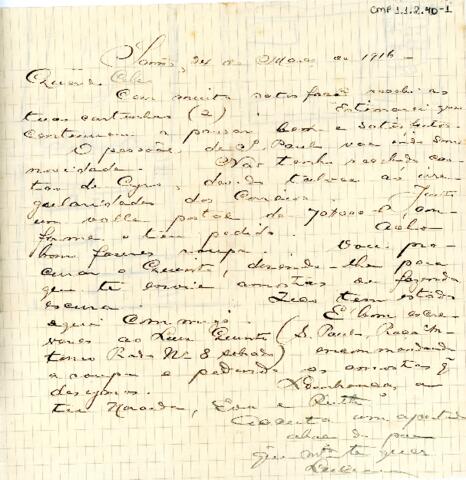 CMP 1.1.2.40-1
Santos, 24 de Março de 1916 -
Querida
Com muita satisfação recebi as
tuas cartinhas (2). Estimarei que
continuem a passar bem e satisfeitos.
O pessoal de S. Paulo vae indo sem
novidade. Não tenho recebido car-
tas do Cyro, devido talvez ás irre-
gularidades dos Correios. Junto
um valle postal de 70$000 con-
forme o teu pedido. Acho
bom fazeres roupa. Voce pro-
curar o Quinto, dizendo-lhe para
que te envie amostras de fazenda
escura. tem estado
aqui commigo. É bom escre-
veres ao Luiz Quinto (S. Paulo, Rua
Nº 8 sobrado) encommendando
a roupa e pedindo as amostras q
desejares. a
tia e Ruth
com apertado
abraço do pae
que m.to te quer